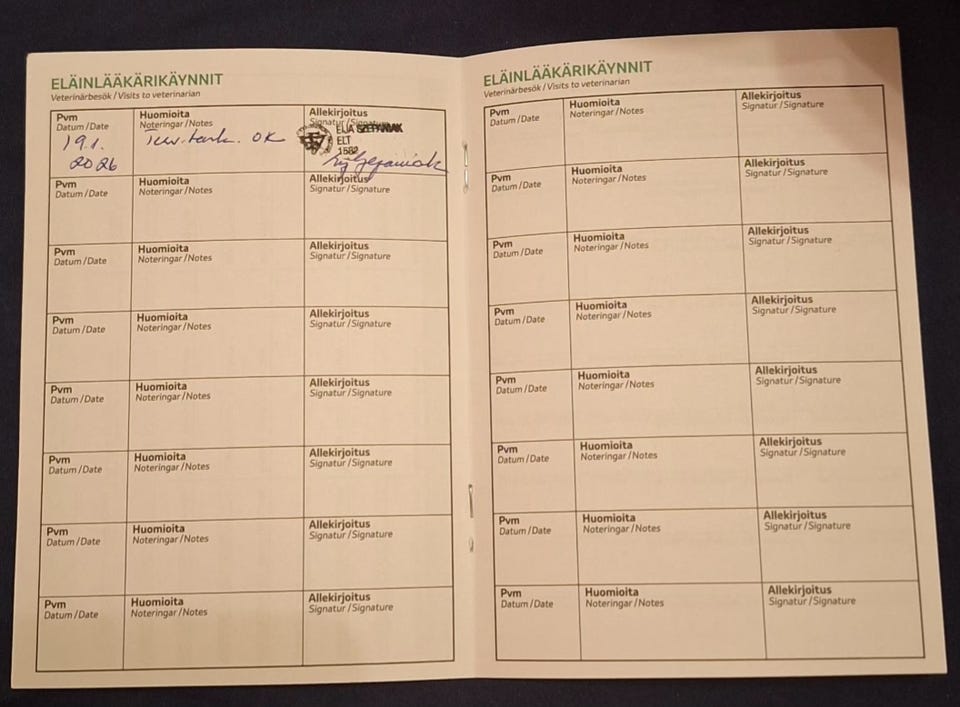 ELÄINLÄÄKÄRIKÄYNNIT
Veterinärbesök / Visits to veterinarian
Pvm Huomioita Allekirjoitus
Datum / Date Noteringar / Notes Signatur / Signature
19.1. Terv.tark. OK EIJA SZEPANIAK
2026 ELT
1582
Pvm Huomioita Allekirjoitus
Datum / Date Noteringar / Notes Signatur / Signature
Pvm Huomioita Allekirjoitus
Datum / Date Noteringar / Notes Signatur / Signature
Pvm Huomioita Allekirjoitus
Datum / Date Noteringar / Notes Signatur / Signature
Pvm Huomioita Allekirjoitus
Datum / Date Noteringar / Notes Signatur / Signature
Pvm Huomioita Allekirjoitus
Datum / Date Noteringar / Notes Signatur / Signature
Pvm Huomioita Allekirjoitus
Datum / Date Noteringar / Notes Signatur / Signature
Pvm Huomioita Allekirjoitus
Datum / Date Noteringar / Notes Signatur / Signature
ELÄINLÄÄKÄRIKÄYNNIT
Veterinärbesök / Visits to veterinarian
Pvm Huomioita Allekirjoitus
Datum / Date Noteringar / Notes Signatur / Signature
Pvm Huomioita Allekirjoitus
Datum / Date Noteringar / Notes Signatur / Signature
Pvm Huomioita Allekirjoitus
Datum / Date Noteringar / Notes Signatur / Signature
Pvm Huomioita Allekirjoitus
Datum / Date Noteringar / Notes Signatur / Signature
Pvm Huomioita Allekirjoitus
Datum / Date Noteringar / Notes Signatur / Signature
Pvm Huomioita Allekirjoitus
Datum / Date Noteringar / Notes Signatur / Signature
Pvm Huomioita Allekirjoitus
Datum / Date Noteringar / Notes Signatur / Signature
Pvm Huomioita Allekirjoitus
Datum / Date Noteringar / Notes Signatur / Signature